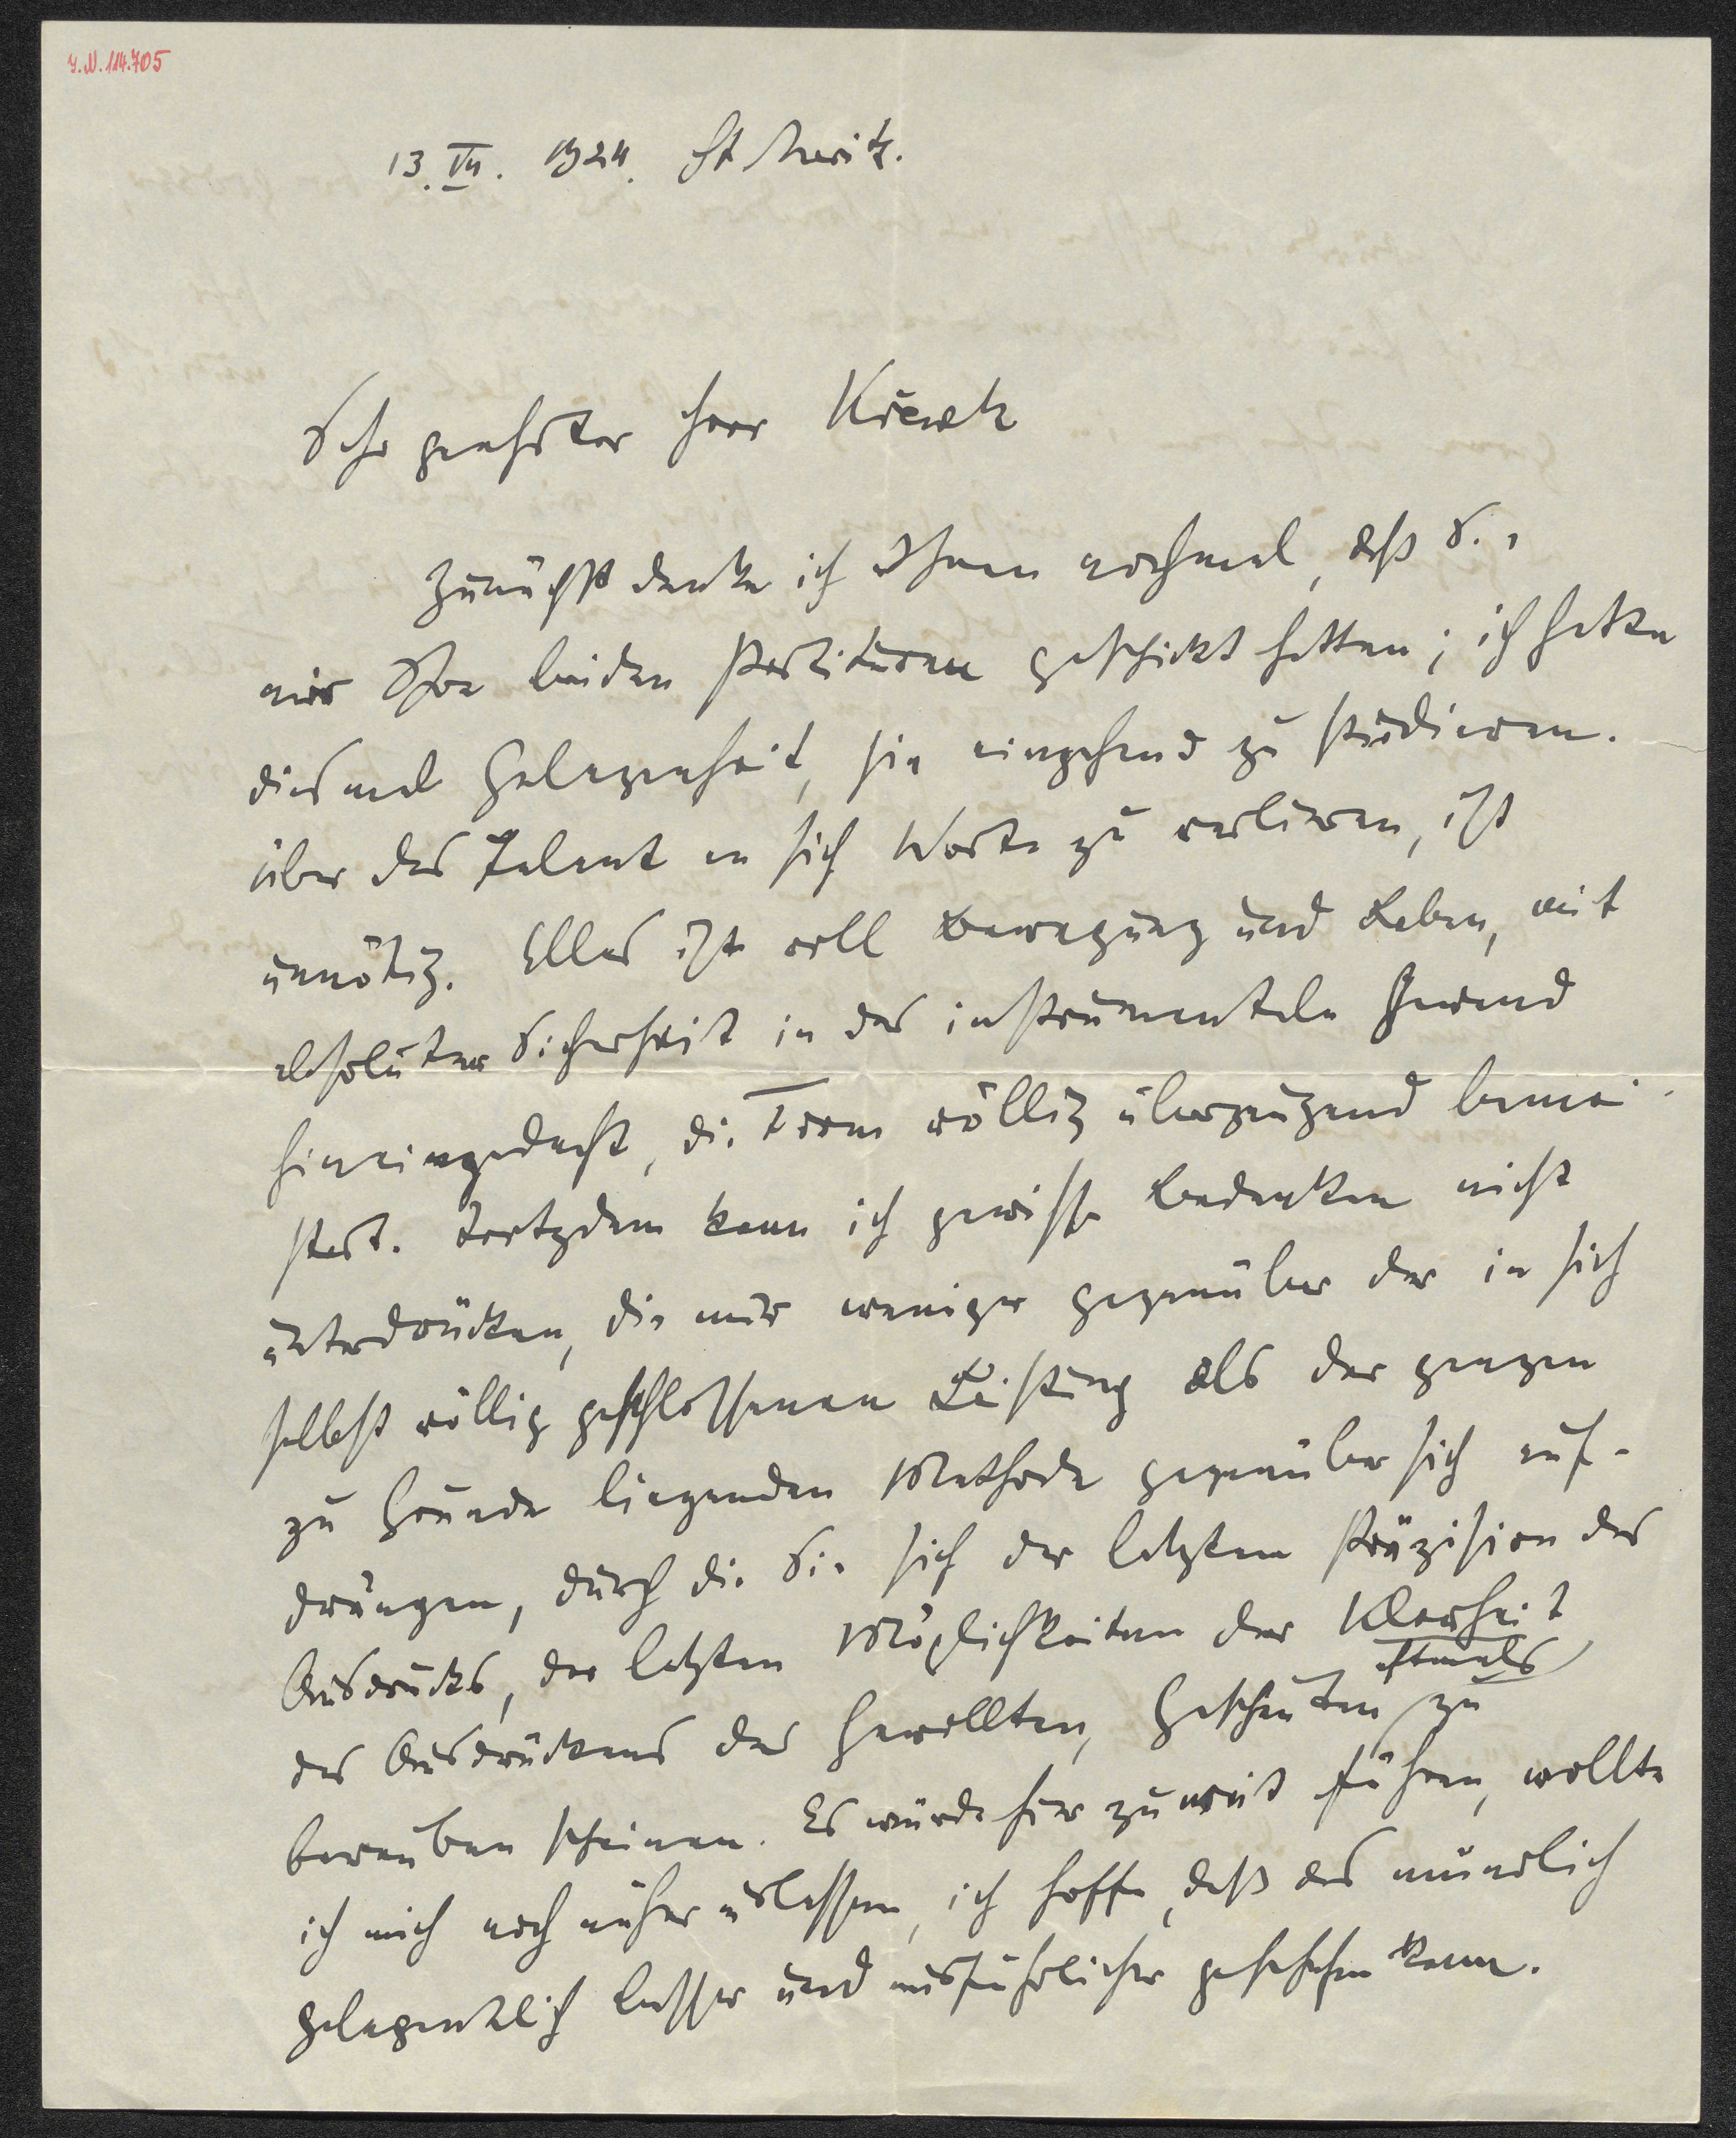 I.N. 114.705
13. VII. 1924. St Moritz.
Sehr geehrter Herr Krenek
Zunächst danke ich Ihnen nochmal, daß Sie
mir Ihre beiden Partituren geschickt hatten; ich hatte
diesmal Gelegenheit, sie eingehend zu studieren.
Über das Talent an sich Worte zu verlieren, ist
unnötig. Alles ist voll Bewegung und Leben, mit
absoluter Sicherheit in das instrumentale Gewand
hineingedacht, die Form völlig überzeugend bemei-
stert. Trotzdem kann ich gewisse Bedenken nicht
unterdrücken, die mir weniger gegenüber der in sich
selbst völlig geschlossenen Leistung als der ganzen
zu Grunde liegenden Methode gegenüber sich auf-
drängen, durch die Sie sich der letzten Präzision des
Ausdrucks, der letzten Möglichkeiten der Klarheit
des Ausdrückens des Gewollten, Geschauten oftmals zu
berauben scheinen. Es würde hier zu weit führen, wollte
ich mich noch näher auslassen, ich hoffe, daß das mündlich
gelegentlich besser und ausführlicher geschehen kann.